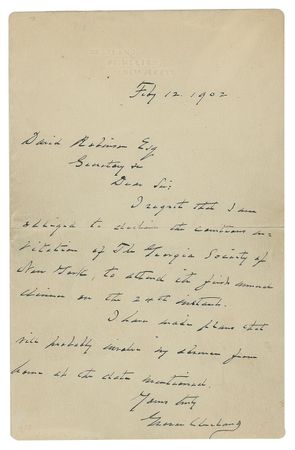 Feby 12. 1902.
David Robinson Esq
Secretary &c
Dear Sir:
I regret that I am
obliged to decline the courteous in-
vitation of The Georgia Society of
New York, to attend its first annual
dinner on the 24th instant.
I have made plans that
will probably involve my absence from
home at the date mentioned.
Yours truly
Grover Cleveland